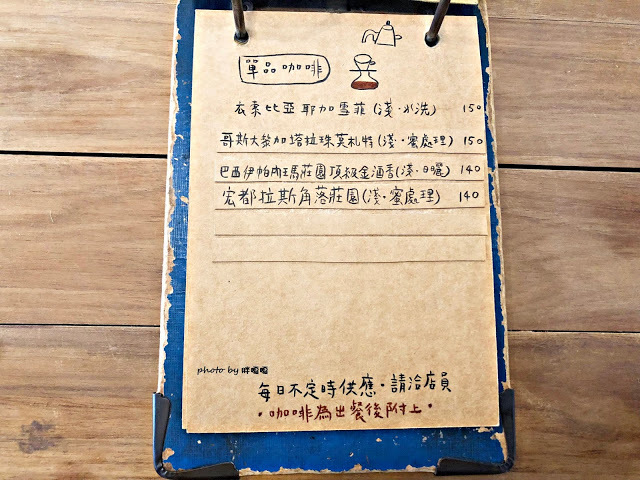 單品咖啡
衣索比亞 耶加雪菲(淺·水洗) 150
哥斯大黎加塔拉珠莫札特(淺·蜜處理) 150
巴西伊帕內瑪莊園頂級金酒香(淺·日曬) 140
宏都拉斯角落莊園(淺·蜜處理) 140
photo by 胖嘟嘟
每日不定時供應·請洽店員
·咖啡為出餐後附上·